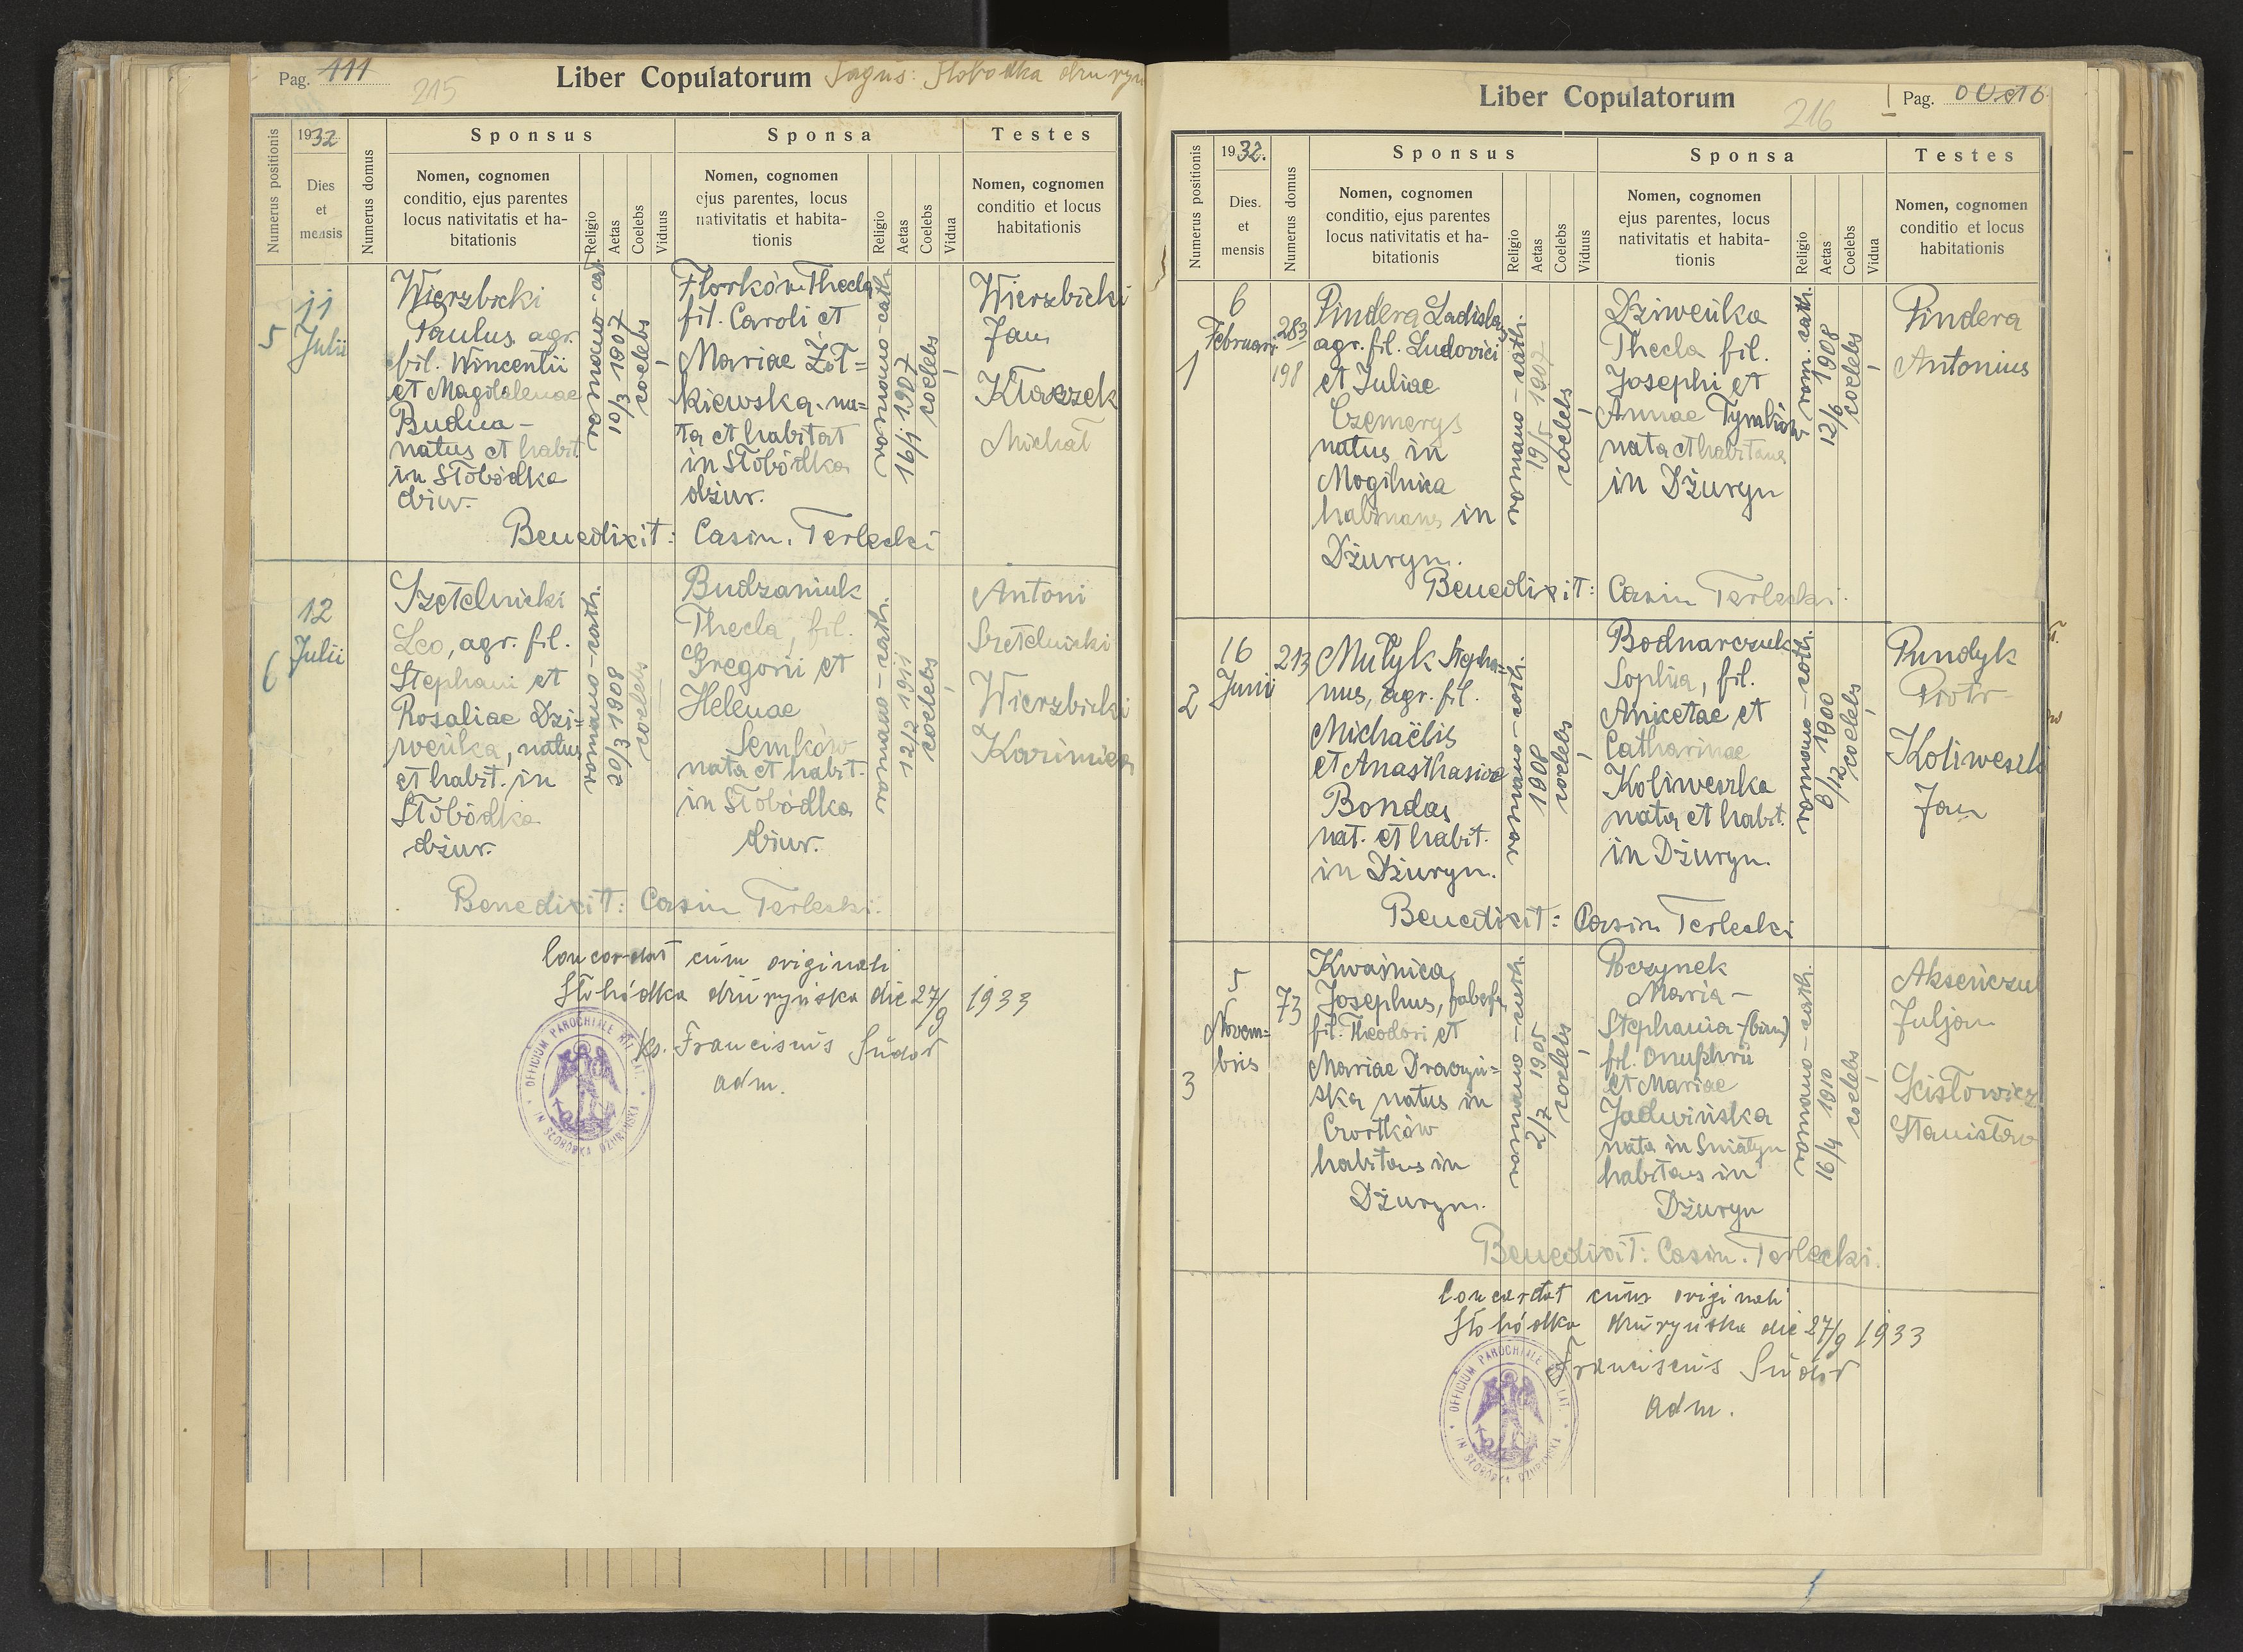 Pag. 111
215
Liber Copulatorum
Numerus positionis
1932
Dies
et
mensis
Numerus domus
Sponsus
Nomen, cognomen
conditio, ejus parentes
locus nativitatis et ha-
bitationis
Religio
Aetas
Coelebs
Viduus
Sponsa
Nomen, cognomen
ejus parentes, locus
nativitatis et habita-
tionis
Religio
Aetas
Coelebs
Vidua
Testes
Nomen, cognomen
conditio et locus
habitationis
5
11
Julii
Wierzbicki
Paulus agr.
fil. Wincentii
et Magdalenae
Budna -
natus et habit.
in Słobódka
dżur.
romano-cat.
10/3 1907
coelebs
Florków Thecla
fil. Caroli et
Mariae Żół=
kiewska. na=
ta et habitat
in Słobódka
dżur.
romano-cath.
16/1 1907
coelebs
Wierzbicki
Jan
Kłaczek
Michał
Benedixit: Casim. Terlecki
6
12
Julii
Szetelnicki
Leo, agr. fil.
Stephani et
Rosaliae Dzi=
weńka, natus
et habit. in
Słobódka
dżur.
romano-cath.
20/3 1908
coelebs
Budzaniuk
Thecla, fil.
Gregorii et
Helenae
Semków
nata et habit.
in Słobódka
dżur.
romano-cath.
12/2 1911
coelebs
Antoni
Szetelnicki
Wierzbicki
Kazimierz
Benedixit: Casim Terlecki.
Concordat cum originali
Słobódka dżuryńska die 27/9 1933
Ks. Franciscus Sudoł
adm.
OFFICIUM PAROCHIALE RIT. LAT.
IN SŁOBÓDKA DŻURYŃSKA
Liber Copulatorum
216
Pag.
Numerus positionis
1932.
Dies.
et
mensis
Numerus domus
Sponsus
Nomen, cognomen
conditio, ejus parentes
locus nativitatis et ha-
bitationis
Religio
Aetas
Coelebs
Viduus
Sponsa
Nomen, cognomen
ejus parentes, locus
nativitatis et habita-
tionis
Religio
Aetas
Coelebs
Vidua
Testes
Nomen, cognomen
conditio et locus
habitationis
1
6
Februari
283
198
Pindera Ladislaus
agr. fil. Ludovici
et Juliae
Czemerys
natus in
Mogilnica
habitans in
Dżuryn.
romano-cath.
19/5 1907
coelebs
Dziweńka
Thecla fil.
Josephi et
Annae Tymków
nata et habitans
in Dżuryn
rom. cath.
12/6 1908
coelebs
Pindera
Antonius
Benedixit: Casim Terlecki.
2
16
Junii
213
Mułyk Stepha=
nus, agr. fil.
Michaëlis
et Anasthasiae
Bondas
nat. et habit.
in Dżuryn.
romano-cath.
1908
coelebs
Bodnarczuk
Sophia, fil.
Anicetae et
Catharinae
Koliweszka
nata et habit.
in Dżuryn.
romano-cath.
9/12 1900
coelebs
Pundyk
Piotr
Jan
Benedixit: Casim Terlecki
3
5
Novem=
bris
73
Kwaśnica
Josephus,
fil. Theodori et
Mariae
ska natus in
Czortków
habitans in
Dżuryn.
romano-cath.
2/7 1905
coelebs
Poczynek
Maria -
Stephania
fil. Onuphrii
et Mariae
Jadwińska
nata in Sniatyn
habitans in
Dżuryn
romano-cath.
16/4 1910
coelebs
Juljan
Scisłowicz
Stanisław
Benedixit: Casim. Terlecki.
Concordat cum originali
Słobódka dżuryńska die 27/9 1933
Franciscus Sudoł
adm.
OFFICIUM PAROCHIALE RIT. LAT.
IN SŁOBÓDKA DŻURYŃSKA